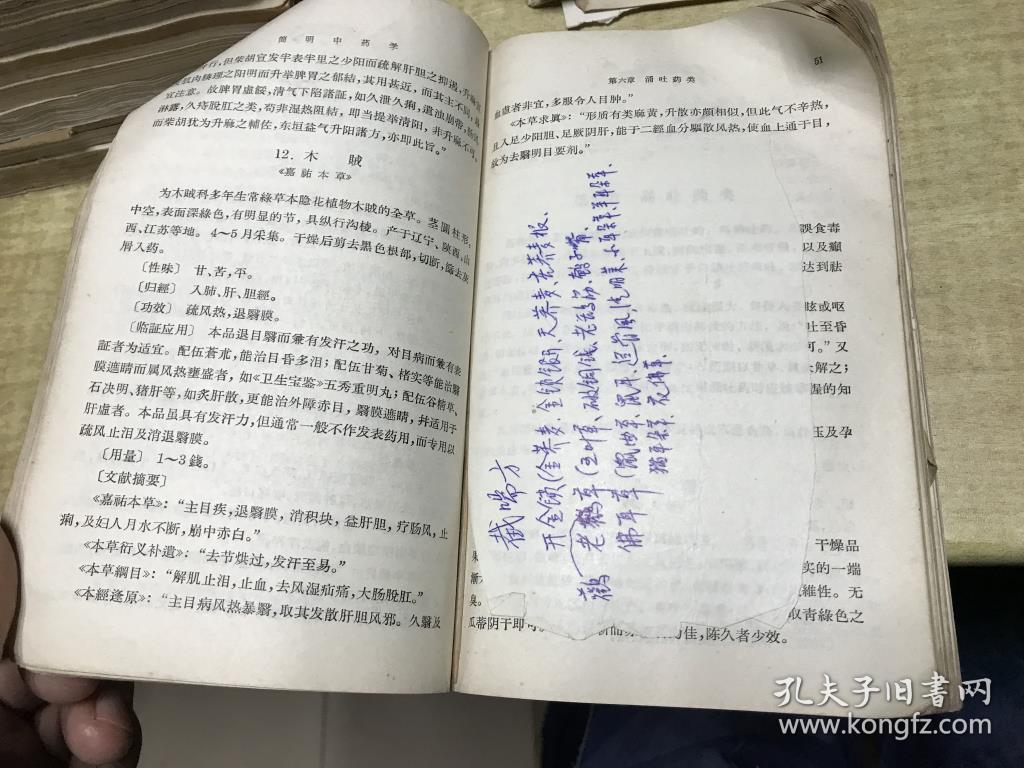 簡明中药学
行，但柴胡宣发半表半里之少阳而疏解肝胆之抑遏，升麻宣
肌肉腠理之阳明而升举脾胃之郁結，其用甚近，而其主不同，最
宜注意。故脾胃虛餒，清气下陷諸証，如久泄久痢，遺浊崩带，肠风
淋露，久痔脫肛之类，苟非湿热阻結，即当提举清阳，非升麻不可。
而柴胡犹为升麻之輔佐，东垣益气升阳諸方，亦即此旨。”
12. 木 賊
《嘉祐本草》
为木賊科多年生常綠草本隐花植物木賊的全草。茎圓柱形，
中空，表面深綠色，有明显的节，具纵行沟棱。产于辽宁、陝西、山
西、江苏等地。4～5月采集。干燥后剪去黑色根部，切断，篩去灰
屑入药。
〔性味〕 甘、苦，平。
〔归經〕 入肺、肝、胆經。
〔功效〕 疏风热，退翳膜。
〔临証应用〕 本品退目翳而兼有发汗之功，对目病而兼有表
証者为适宜。配伍蒼朮，能治目昏多泪；配伍甘菊、楮实等能治翳
膜遮睛而属风热壅盛者，如《卫生宝鉴》五秀重明丸；配伍谷精草、
石决明、猪肝等，如炙肝散，更能治外障赤目，翳膜遮睛，幷适用于
肝虛者。本品虽具有发汗力，但通常一般不作发表药用，而专用以
疏风止泪及消退翳膜。
〔用量〕 1～3錢。
〔文献摘要〕
《嘉祐本草》：“主目疾，退翳膜，消积块，益肝胆，疗肠风，止
痢，及妇人月水不断，崩中赤白。”
《本草衍义补遺》：“去节烘过，发汗至易。”
《本草綱目》：“解肌止泪，止血，去风湿疝痛，大肠脫肛。”
《本經逢原》：“主目病风热暴翳，取其发散肝胆风邪。久翳及
第六章 涌吐药类
51
血虛者非宜，多服令人目肿。”
《本草求眞》：“形质有类麻黃，升散亦頗相似，但此气不辛热，
且入足少阳胆、足厥阴肝，能于二經血分驅散风热，使血上通于目，
故为去翳明目要剂。”
截喘方
开金锁(金荞麦、金锁银开、天荞麦、
老鹳草(五叶草、破铜钱、老鸹筋、鹤子嘴、
鹳
佛耳草(鼠曲草、鼠耳、追骨风、清明菜、
猫耳朵草、
誤食毒
以及癲
达到祛
眩或呕
吐至昏
可。”又
解之；
握的知
及孕
干燥品
实的一端
維性。无
臭。
取青綠色之
瓜蒂阴干即可。
佳，陈久者少效。
孔夫子旧書网
www.kongfz.com